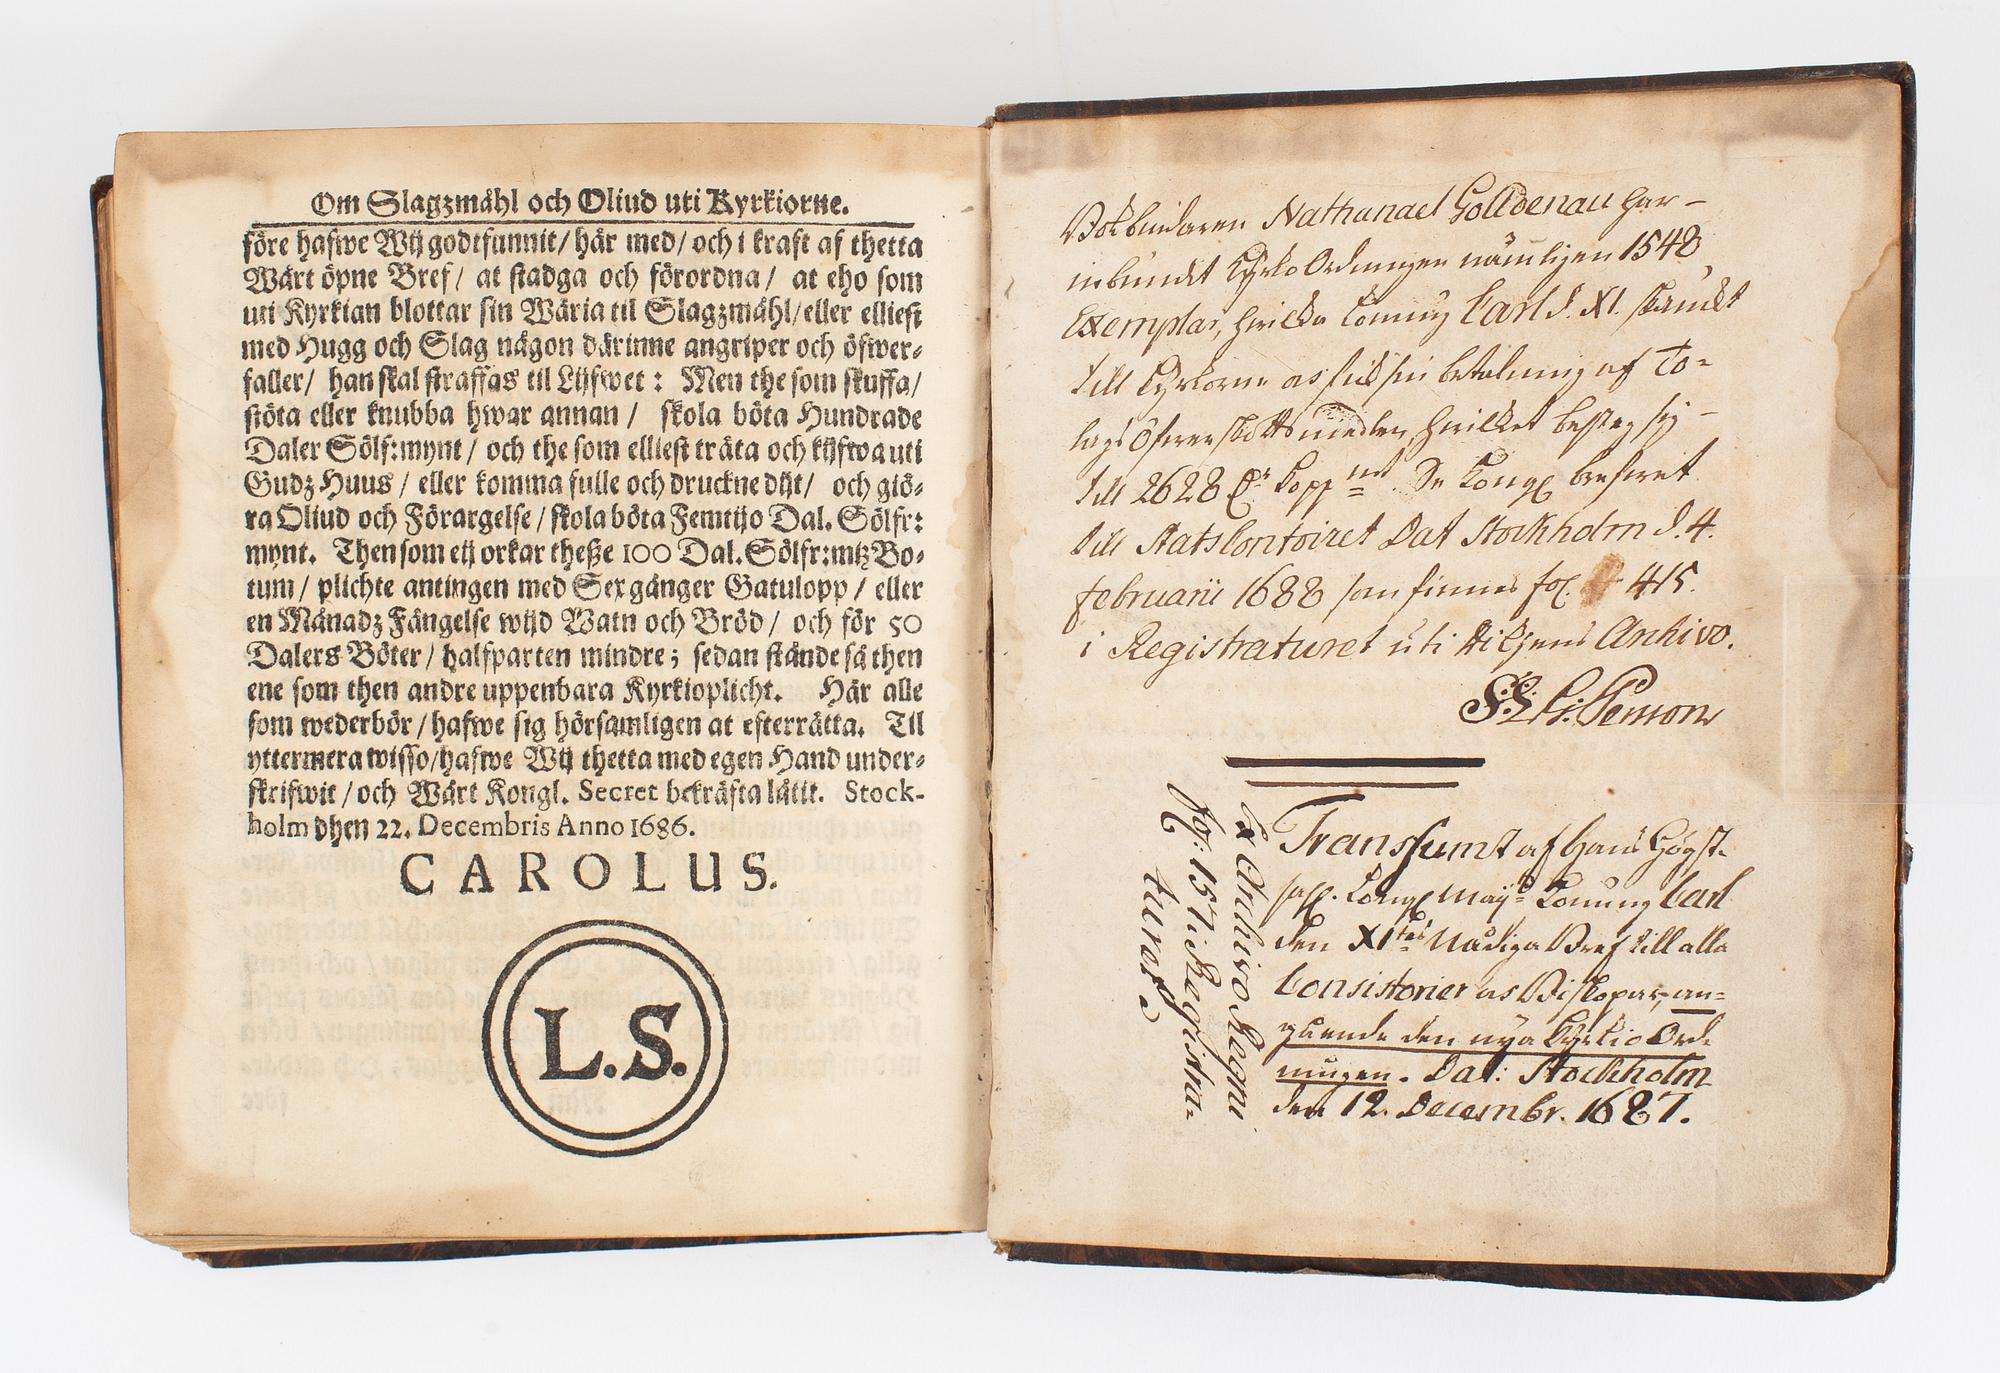 Om Slagzmåhl och Oliud uti Kyrkiorne.
före hafwe Wij godtfunnit/ här med/ och i kraft af thetta
Wårt öpne Bref/ at stadga och förordna/ at eho som
uti Kyrkian blottar sin Wäria til Slagzmåhl/eller elliest
med Hugg och Slag någon därinne angriper och öfwer-
faller/ han skal straffas til Lijfwet: Men the som skuffa/
stöta eller knubba hwar annan/ skola böta Hundrade
Daler Sölf:mynt/ och the som elliest träta och kijfwa uti
Gudz Huus/ eller komma fulle och druckne dijt/ och giö-
ra Oliud och Förargelse/ skola böta Femtijo Dal. Sölfr:
mynt. Then som eij orkar theße 100 Dal. Sölfr:mtz Bo-
tum/ plichte antingen med Sex gånger Gatulopp/ eller
en Månadz Fängelse wijd Vatn och Bröd/ och för 50
Dalers Böter/ halfparten mindre; sedan stånde så then
ene som then andre uppenbara Kyrkioplicht. Här alle
som wederbör/ hafwe sig hörsamligen at efterrätta. Til
yttermera wisso/hafwe Wij thetta med egen Hand under-
skrifwit/ och Wårt Kongl. Secret bekräfta låtit. Stock-
holm dhen 22. Decembris Anno 1686.
CAROLUS.
L.S.
Bokbindaren Nathanael Golldenau har-
inbundit KyrkoOrdningen nämligen 1548
Exemplar, hvilka Konung Carl d. XI. skänckt
till Kyrkorne
betalning af To-
lags Öfverskotts medlen, hvilket besteg sig-
till 2628 Dr Kopp mt Se Kongl brefvet
till Statscontoiret Dat Stockholm d. 4.
Februarii 1688 som finnes fol. 415.
i Registraturet uti Riksens Archivo.
Transsumt af Hans Högst-
sal. Kongl Maijts Konung Carl
den XItes Nådiga Bref till alla
Consistorier os Biskopar, an-
gående den nya KyrkioOrd-
ningen. Dat: Stockholm
den 12. Decembr. 1687.
Ex Archivo Regni
fol: 157 i Registra-
turet